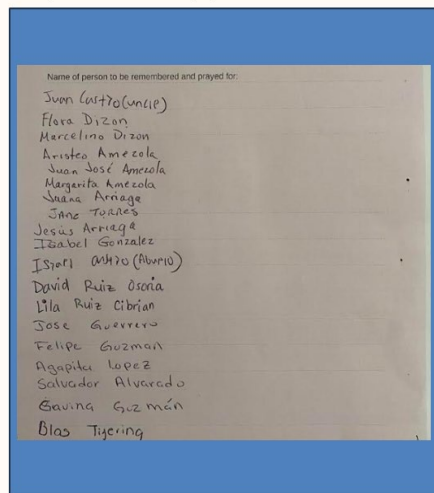 Name of person to be remembered and prayed for:
Juan Castro (uncle)
Flora Dizon
Marcelino Dizon
Aristeo Amezola
Juan José Amezola
Margarita Amezola
Juana Arriaga
JANE TORRES
Jesús Arriaga
Isabel Gonzalez
Israel (Abuelo)
David Ruiz Osoria
Lila Ruiz Cibrian
Jose Guerrero
Felipe Guzman
Agapita Lopez
Salvador Alvarado
Gavina Guzmán
Blas